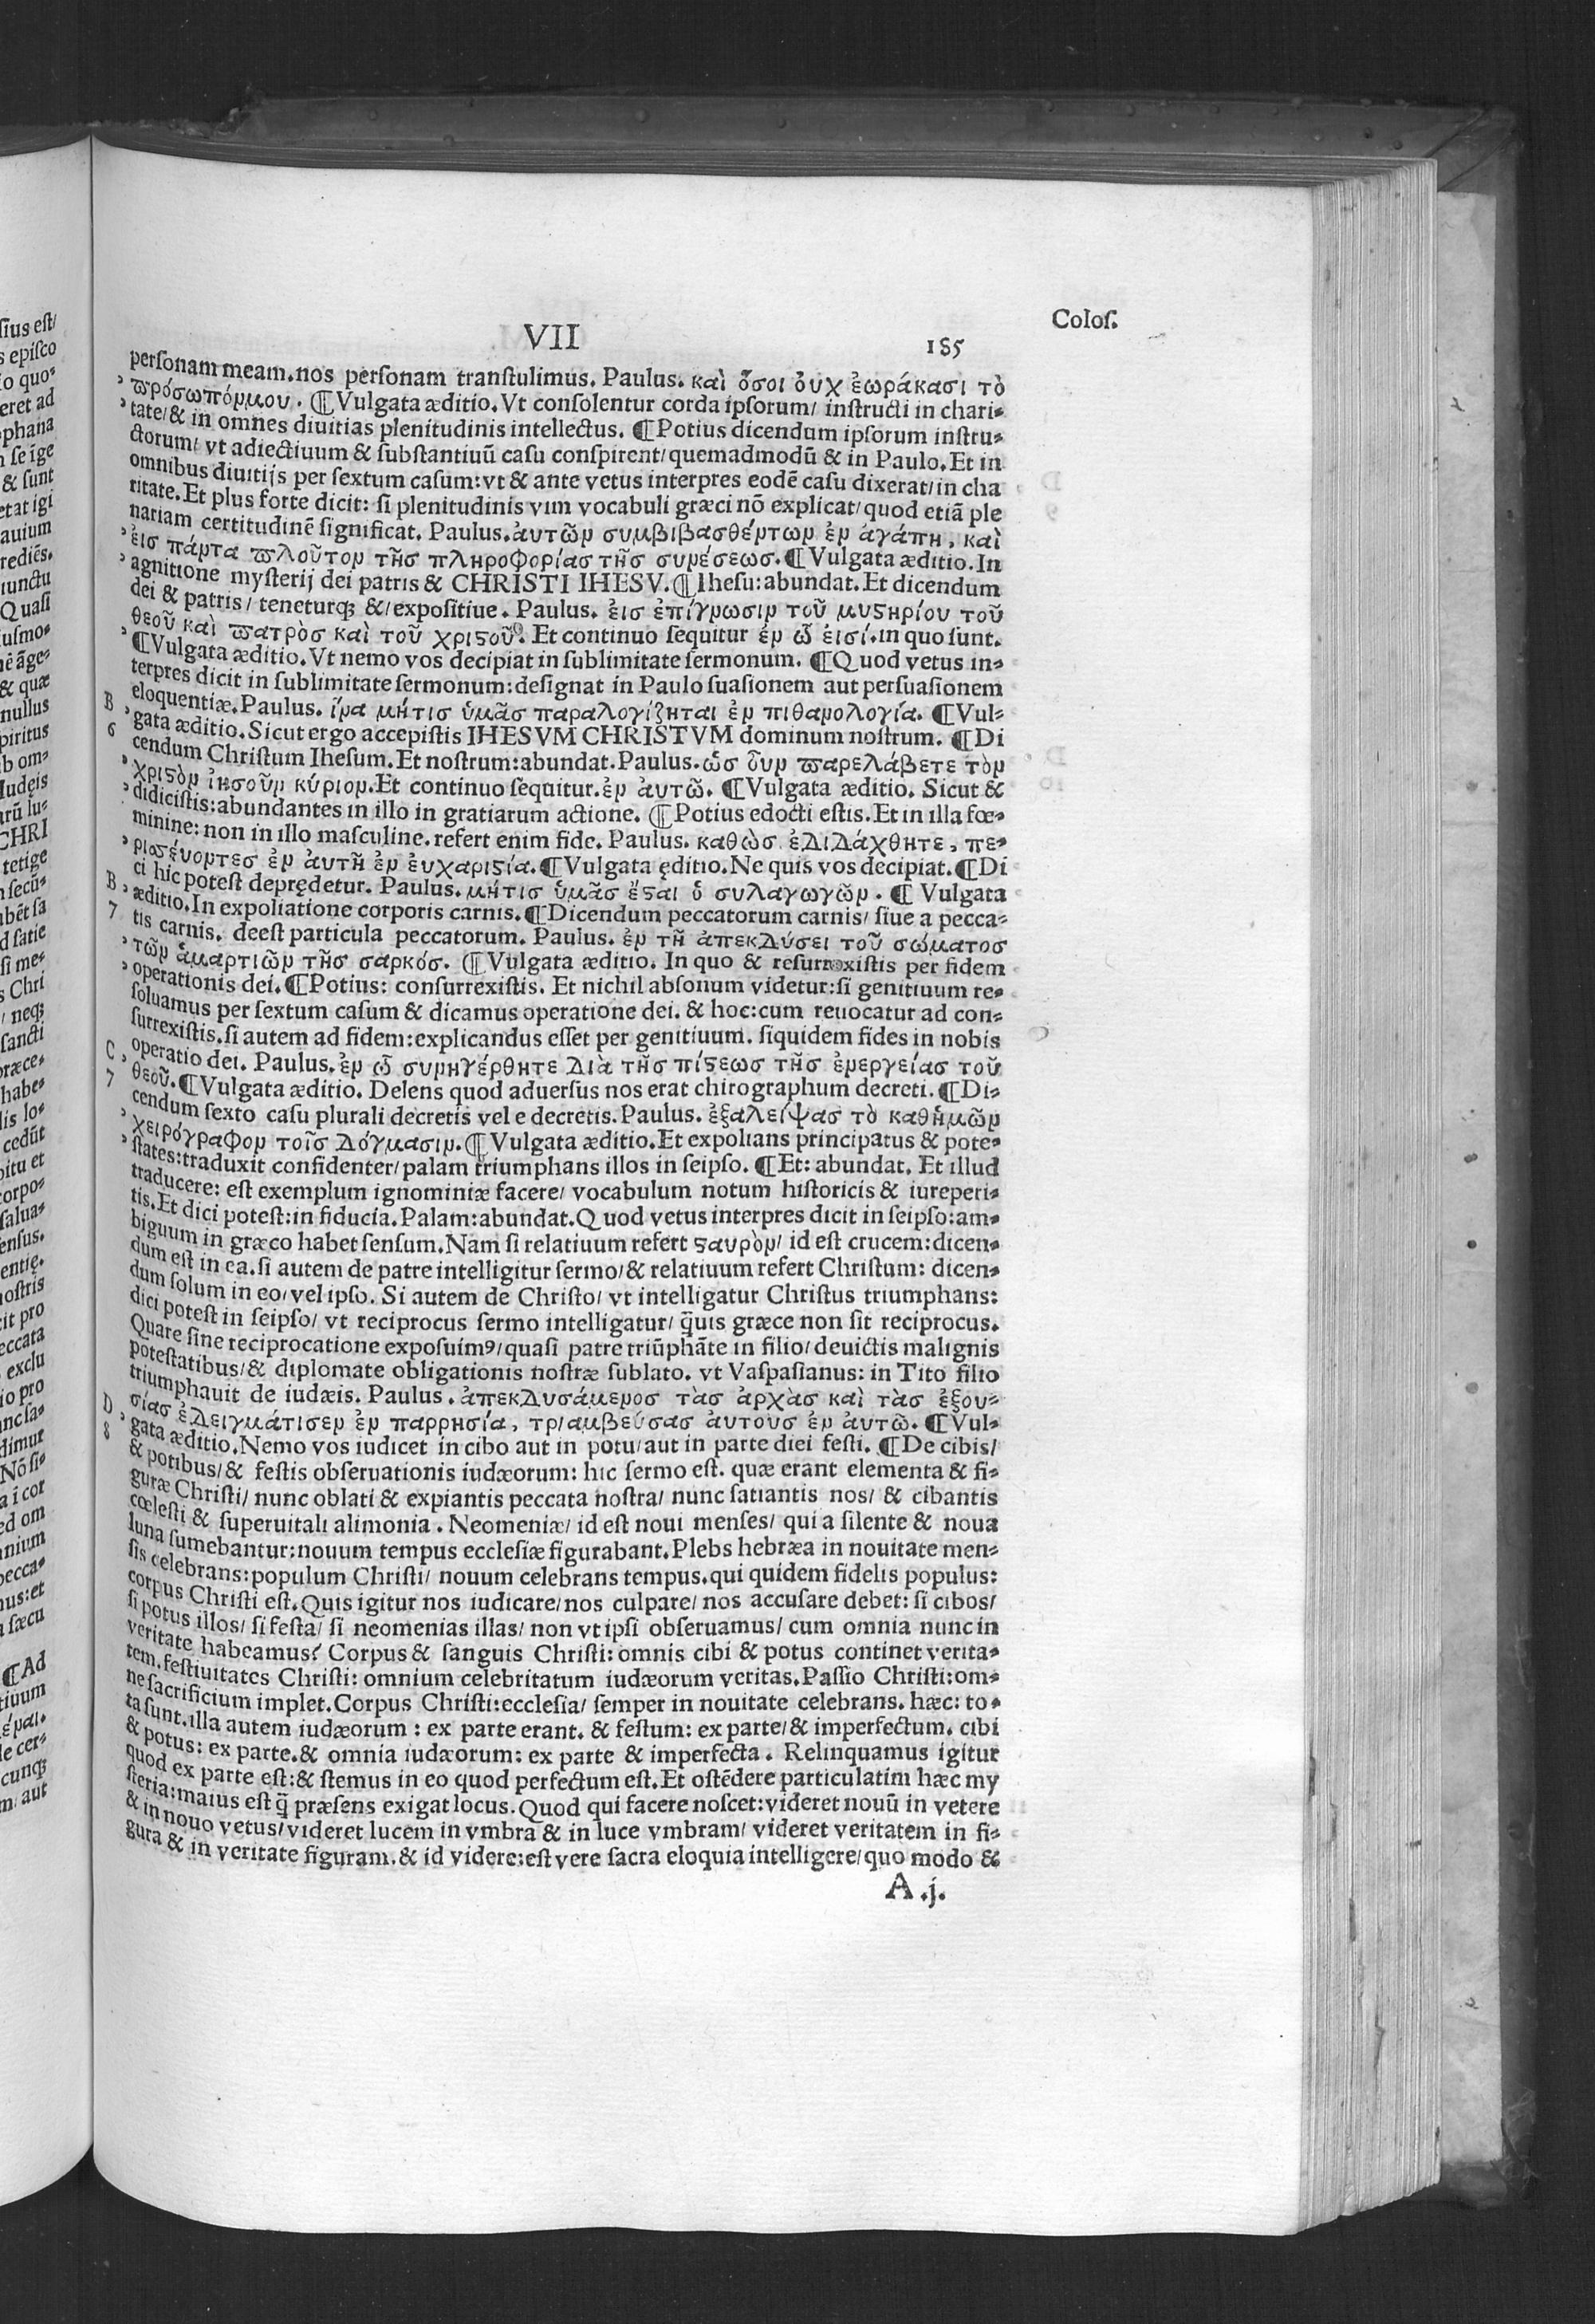 sius est/
s episco
io quo-
eret ad
phana
n se ige
& sunt
etat igi
auium
rediēs.
iunctu
Quasi
iusmo-
nē āge-
& quæ
nullus
piritus
b om-
Iudęis
arū lu-
CHRI
tetige
n secū-
bēt sa
d satie
si me-
s Chri
/ neqꝫ
sancti
præce-
habe-
lis lo-
cedūt
bitu et
corpo-
salua-
ensus.
entię.
nostris
cit pro
eccata
exclu
io pro
nc sa-
dimur
Nō si-
a i cor
ed om
nium
pecca-
nus: et
a sæcu
¶ Ad
tiuum
de cer-
cunqꝫ
m/ aut
VII
185
Colos.
personam meam. nos personam transtulimus. Paulus. καὶ ὅσοι ὀυχ ἑωράκασι τὸ
πρόσωπόμμου. ¶ Vulgata æditio. Vt consolentur corda ipsorum/ instructi in chari-
tate/ & in omnes diuitias plenitudinis intellectus. ¶ Potius dicendum ipsorum instru-
ctorum/ vt adiectiuum & substantiuū casu conspirent/ quemadmodū & in Paulo. Et in
omnibus diuitijs per sextum casum: vt & ante vetus interpres eodē casu dixerat/ in cha
ritate. Et plus forte dicit: si plenitudinis vim vocabuli græci nō explicat/ quod etiā ple
nariam certitudinē significat. Paulus. ἀυτῶν συμβιβασθέντων ἐν ἀγάπη, καὶ
ἐισ πάντα πλοῦτον τῆσ πληροφορίασ τῆσ συνέσεωσ. ¶ Vulgata æditio. In
agnitione mysterij dei patris & CHRISTI IHESV. ¶ Ihesu: abundat. Et dicendum
dei & patris/ teneturqꝫ &/ expositiue. Paulus. ἐισ ἐπίγνωσιν τοῦ μυϛηρίου τοῦ
θεοῦ καὶ πατρὸσ καὶ τοῦ χριϛοῦ. Et continuo sequitur ἐν ὧ ἐισί. in quo sunt.
¶ Vulgata æditio. Vt nemo vos decipiat in sublimitate sermonum. ¶ Quod vetus in-
terpres dicit in sublimitate sermonum: designat in Paulo suasionem aut persuasionem
B eloquentiæ. Paulus. ἵνα μήτισ ὑμᾶσ παραλογίζηται ἐν πιθανολογία. ¶ Vul-
6 gata æditio. Sicut ergo accepistis IHESVM CHRISTVM dominum nostrum. ¶ Di
cendum Christum Ihesum. Et nostrum: abundat. Paulus. ὡσ ὀῦν παρελάβετε τὸν
χριϛὸν ἰησοῦν κύριον. Et continuo sequitur. ἐν ἀυτῶ. ¶ Vulgata æditio. Sicut &
didicistis: abundantes in illo in gratiarum actione. ¶ Potius edocti estis. Et in illa fœ-
minine: non in illo masculine. refert enim fide. Paulus. καθὼσ ἐδιδάχθητε, πε-
ρισσέυοντεσ ἐν ἀυτῆ ἐν ἐυχαριϛία. ¶ Vulgata ęditio. Ne quis vos decipiat. ¶ Di
ci hic potest deprędetur. Paulus. μήτισ ὑμᾶσ ἔϛαι ὁ συλαγωγῶν. ¶ Vulgata
B æditio. In expoliatione corporis carnis. ¶ Dicendum peccatorum carnis/ siue a pecca-
7 tis carnis. deest particula peccatorum. Paulus. ἐν τῆ ἀπεκδύσει τοῦ σώματοσ
τῶν ἁμαρτιῶν τῆσ σαρκόσ. ¶ Vulgata æditio. In quo & resurrexistis per fidem
operationis dei. ¶ Potius: consurrexistis. Et nichil absonum videtur: si genitiuum re-
soluamus per sextum casum & dicamus operatione dei. & hoc: cum reuocatur ad con-
surrexistis. si autem ad fidem: explicandus esset per genitiuum. siquidem fides in nobis
C operatio dei. Paulus. ἐν ὧ συνηγέρθητε διὰ τῆσ πίϛεωσ τῆσ ἐνεργείασ τοῦ
7 θεοῦ. ¶ Vulgata æditio. Delens quod aduersus nos erat chirographum decreti. ¶ Di-
cendum sexto casu plurali decretis vel e decretis. Paulus. ἐξαλείψασ τὸ καθἡμῶν
χειρόγραφον τοῖσ δόγμασιν. ¶ Vulgata æditio. Et expolians principatus & pote-
states: traduxit confidenter/ palam triumphans illos in seipso. ¶ Et: abundat. Et illud
traducere: est exemplum ignominiæ facere/ vocabulum notum historicis & iureperi-
tis. Et dici potest: in fiducia. Palam: abundat. Quod vetus interpres dicit in seipso: am-
biguum in græco habet sensum. Nam si relatiuum refert ϛαυρὸν/ id est crucem: dicen-
dum est in ea. si autem de patre intelligitur sermo/ & relatiuum refert Christum: dicen-
dum solum in eo/ vel ipso. Si autem de Christo/ vt intelligatur Christus triumphans:
dici potest in seipso/ vt reciprocus sermo intelligatur/ q̄uis græce non sit reciprocus.
Quare sine reciprocatione exposuimꝰ/ quasi patre triūphāte in filio/ deuictis malignis
potestatibus/ & diplomate obligationis nostræ sublato. vt Vaspasianus: in Tito filio
triumphauit de iudæis. Paulus. ἀπεκδυσάμενοσ τὰσ ἀρχὰσ καὶ τὰσ ἐξου-
D σίασ ἐδειγμάτισεν ἐν παρρησία, τριαμβεύσασ ἀυτουσ ἐν ἀυτῶ. ¶ Vul-
8 gata æditio. Nemo vos iudicet in cibo aut in potu/ aut in parte diei festi. ¶ De cibis/
& potibus/ & festis obseruationis iudæorum: hic sermo est. quæ erant elementa & fi-
guræ Christi/ nunc oblati & expiantis peccata nostra/ nunc satiantis nos/ & cibantis
cœlesti & superuitali alimonia. Neomeniæ/ id est noui menses/ qui a silente & noua
luna sumebantur: nouum tempus ecclesiæ figurabant. Plebs hebræa in nouitate men-
sis celebrans: populum Christi/ nouum celebrans tempus. qui quidem fidelis populus:
corpus Christi est. Quis igitur nos iudicare/ nos culpare/ nos accusare debet: si cibos/
si potus illos/ si festa/ si neomenias illas/ non vt ipsi obseruamus/ cum omnia nunc in
veritate habeamus? Corpus & sanguis Christi: omnis cibi & potus continet verita-
tem. festiuitates Christi: omnium celebritatum iudæorum veritas. Passio Christi: om-
ne sacrificium implet. Corpus Christi: ecclesia/ semper in nouitate celebrans. hæc: to-
ta sunt. illa autem iudæorum: ex parte erant. & festum: ex parte/ & imperfectum. cibi
& potus: ex parte. & omnia iudæorum: ex parte & imperfecta. Relinquamus igitur
quod ex parte est: & stemus in eo quod perfectum est. Et ostēdere particulatim hæc my
steria: maius est q̄ præsens exigat locus. Quod qui facere noscet: videret nouū in vetere
& in nouo vetus/ videret lucem in vmbra & in luce vmbram/ videret veritatem in fi-
gura & in veritate figuram. & id videre: est vere sacra eloquia intelligere/ quo modo &
A .j.